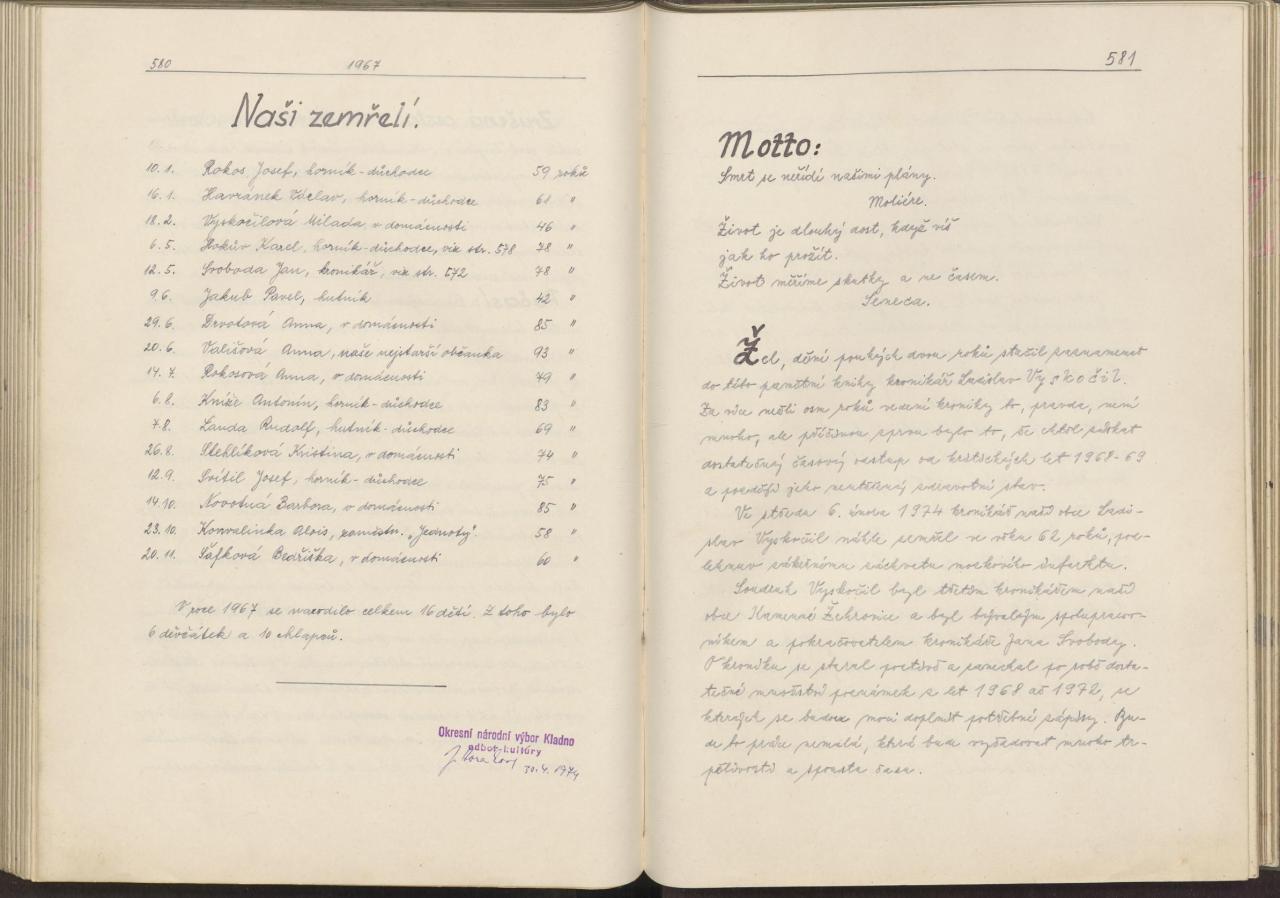 580
1967
Naši zemřelí.
10.1. Rokos Josef, horník-důchodce 59 roků
16.1. Havránek Václav, horník-důchodce 61 "
18.2. Vyskočilová Milada, v domácnosti 46 "
6.5. Hokův Karel, horník-důchodce, viz str. 578 78 "
12.5. Svoboda Jan, kronikář, viz str. 572 78 "
9.6. Jakub Pavel, hutník 42 "
29.6. Drvotová Anna, v domácnosti 85 "
20.6. Vališová Anna, naše nejstarší občanka 93 "
14.7. Rokosová Anna, v domácnosti 79 "
6.8. Kníže Antonín, horník-důchodce 83 "
7.8. Landa Rudolf, hutník-důchodce 69 "
26.8. Stehlíková Kristina, v domácnosti 74 "
12.9. Svítil Josef, horník-důchodce 75 "
14.10. Novotná Barbora, v domácnosti 85 "
23.10. Konvalinka Alois, zaměstn. „Jednoty". 58 "
20.11. Šafková Bedřiška, v domácnosti 60 "
V roce 1967 se narodilo celkem 16 dětí. Z toho bylo
6 děvčátek a 10 chlapců.
Okresní národní výbor Kladno
odbor kultury
30.4.1974
581
Motto:
Smrt se neřídí našimi plány.
Moliére.
Život je dlouhý dost, když víš
jak ho prožít.
Život měříme skutky a ne časem.
Seneca.
Žel, dění pouhých dvou roků stačil zaznamenat
do této pamětní knihy kronikář Ladislav Vyskočil.
Za více nežli osm roků vedení kroniky to, pravda, není
mnoho, ale příčinou zprvu bylo to, že chtěl získat
dostatečný časový odstup od kritických let 1968-69
a později jeho neutěšený zdravotní stav.
Ve středu 6. února 1974 kronikář naší obce Ladi-
slav Vyskočil náhle zemřel ve věku 62 roků, pod-
lehnuv zákeřnému záchvatu mozkového infarktu.
Soudruh Vyskočil byl třetím kronikářem naší
obce Kamenné Žehrovice a byl bývalým spolupracov-
níkem a pokračovatelem kronikáře Jana Svobody.
O kroniku se staral poctivě a zanechal po sobě dosta-
tečné množství poznámek z let 1968 až 1972, ze
kterých se budou moci doplnit potřebné zápisy. Bu-
de to práce nemalá, která bude vyžadovat mnoho tr-
pělivosti a spousta času.